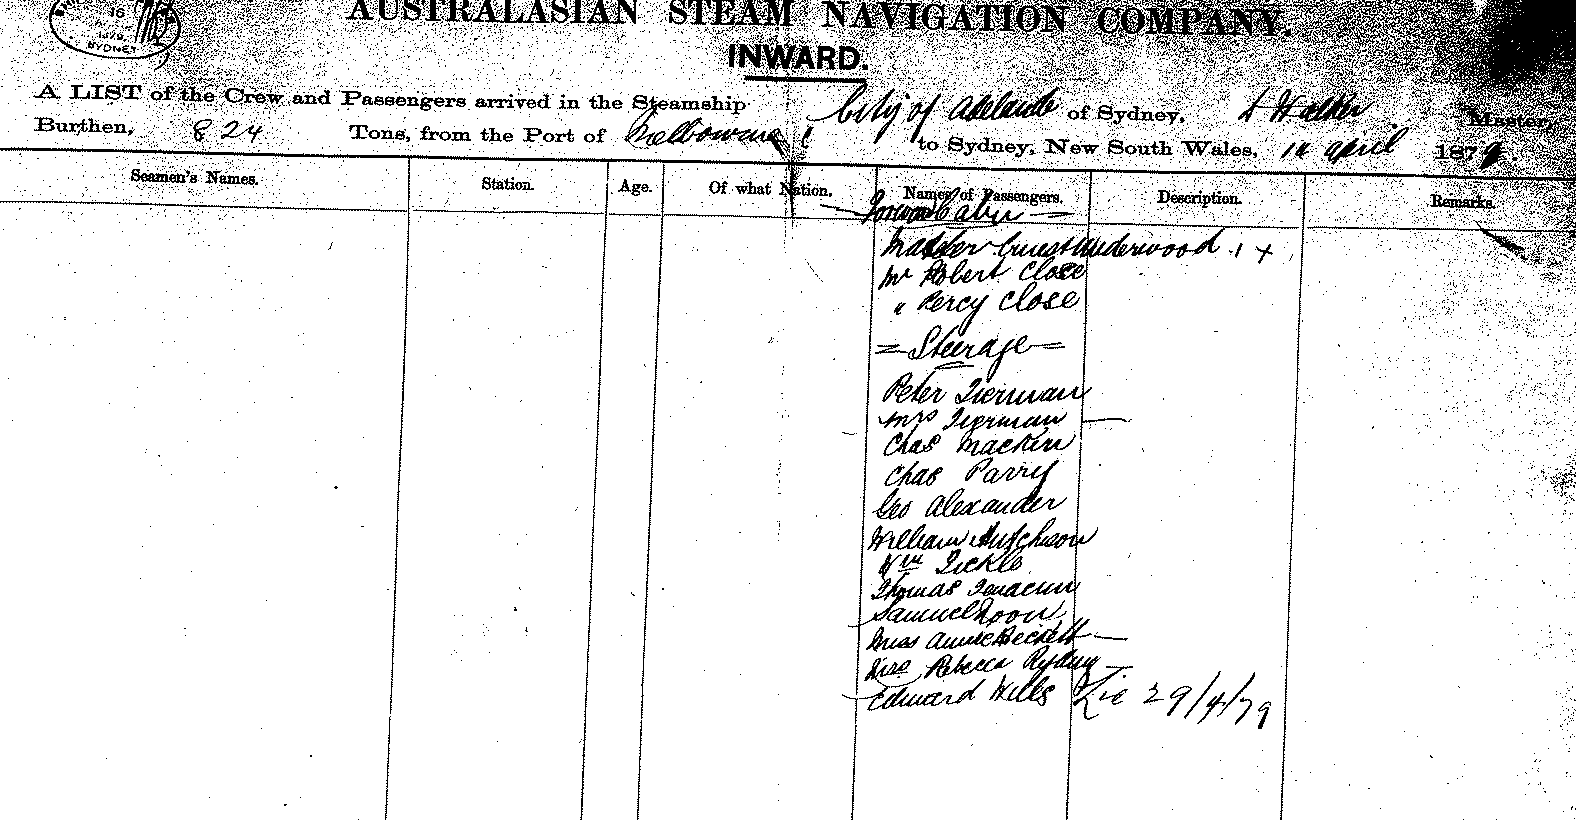 16
1879
SYDNEY
AUSTRALASIAN STEAM NAVIGATION COMPANY.
INWARD.
A LIST of the Crew and Passengers arrived in the Steamship City of Adelaide of Sydney, Walker Master,
Burthen, 824 Tons, from the Port of Melbourne to Sydney, New South Wales, april 1879.
Seamen's Names. Station. Age. Of what Nation. Names of Passengers. Description. Remarks.
Cabin
Master Ernest Underwood 1 +
Mr Robert Close
" Percy Close
= Steerage =
Peter Tierman
Mrs Tierman
Chas Mackin
Chas Parry
Geo Alexander
William Hutchison
Wm Tickle
Thomas
Samuel
Miss Annie Beckett
Rebecca
Edward Wills
29/4/79